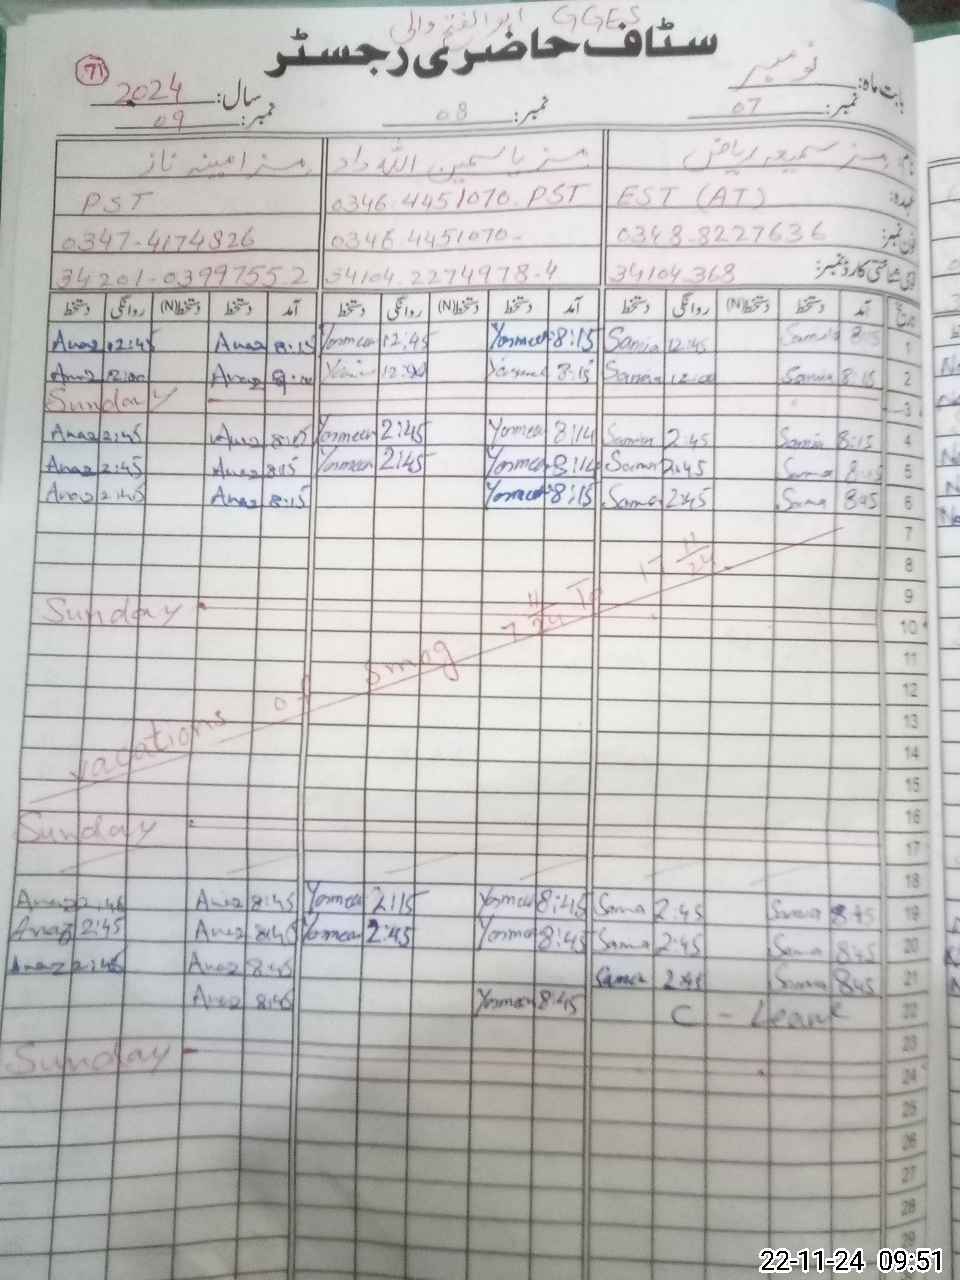 GGES ابوالفتح والی
سٹاف حاضری رجسٹر
71
بابت ماہ: نومبر سال: 2024
نمبر: 07 نمبر: 08 نمبر: 09
مسز سمیعہ ریاض مسز یاسمین اللہ داد مسز امینہ ناز
عہدہ: EST (AT) 0346-4451070- PST PST
فون نمبر: 0348-8227636 0346-4451070- 0347-4174826
34104-368 34104-2274978-4 34201-0399755-2
آمد دستخط دستخط(N) روانگی دستخط آمد دستخط دستخط(N) روانگی دستخط آمد دستخط دستخط(N) روانگی دستخط
1 8:15 Samia 12:45 Samia 8:15 Yasmeen 12:45 Yasmeen 8:15 Anaz 12:45 Anaz
2 8:15 Samia 12:00 Samia 8:15 12:00 Anaz 12:00 Anaz
3 Sunday
4 8:15 Samia 2:45 Samia 8:14 Yasmeen 2:45 Yasmeen 8:15 Anaz 2:45 Anaz
5 8:15 Samia 2:45 Samia 8:14 Yasmeen 2:45 Yasmeen 8:15 Anaz 2:45 Anaz
6 8:15 Samia 2:45 Samia 8:15 Yasmeen 8:15 Anaz 2:45 Anaz
7
8
9
10 Sunday
11
12
vacations of smog 7 11/24 To 17 11/24
13
14
15
16
17 Sunday
18
19 8:45 Samia 2:45 Samia 8:45 Yasmeen 2:15 Yasmeen 8:45 Anaz 2:45 Anaz
20 8:45 Samia 2:45 Samia 8:45 Yasmeen 2:45 Yasmeen 8:45 Anaz 2:45 Anaz
21 8:45 Samia 2:45 Samia 8:45 Anaz 2:45 Anaz
22 C - Leave 8:45 Yasmeen 8:45 Anaz
23
24 Sunday
25
26
27
28
29
22-11-24 09:51